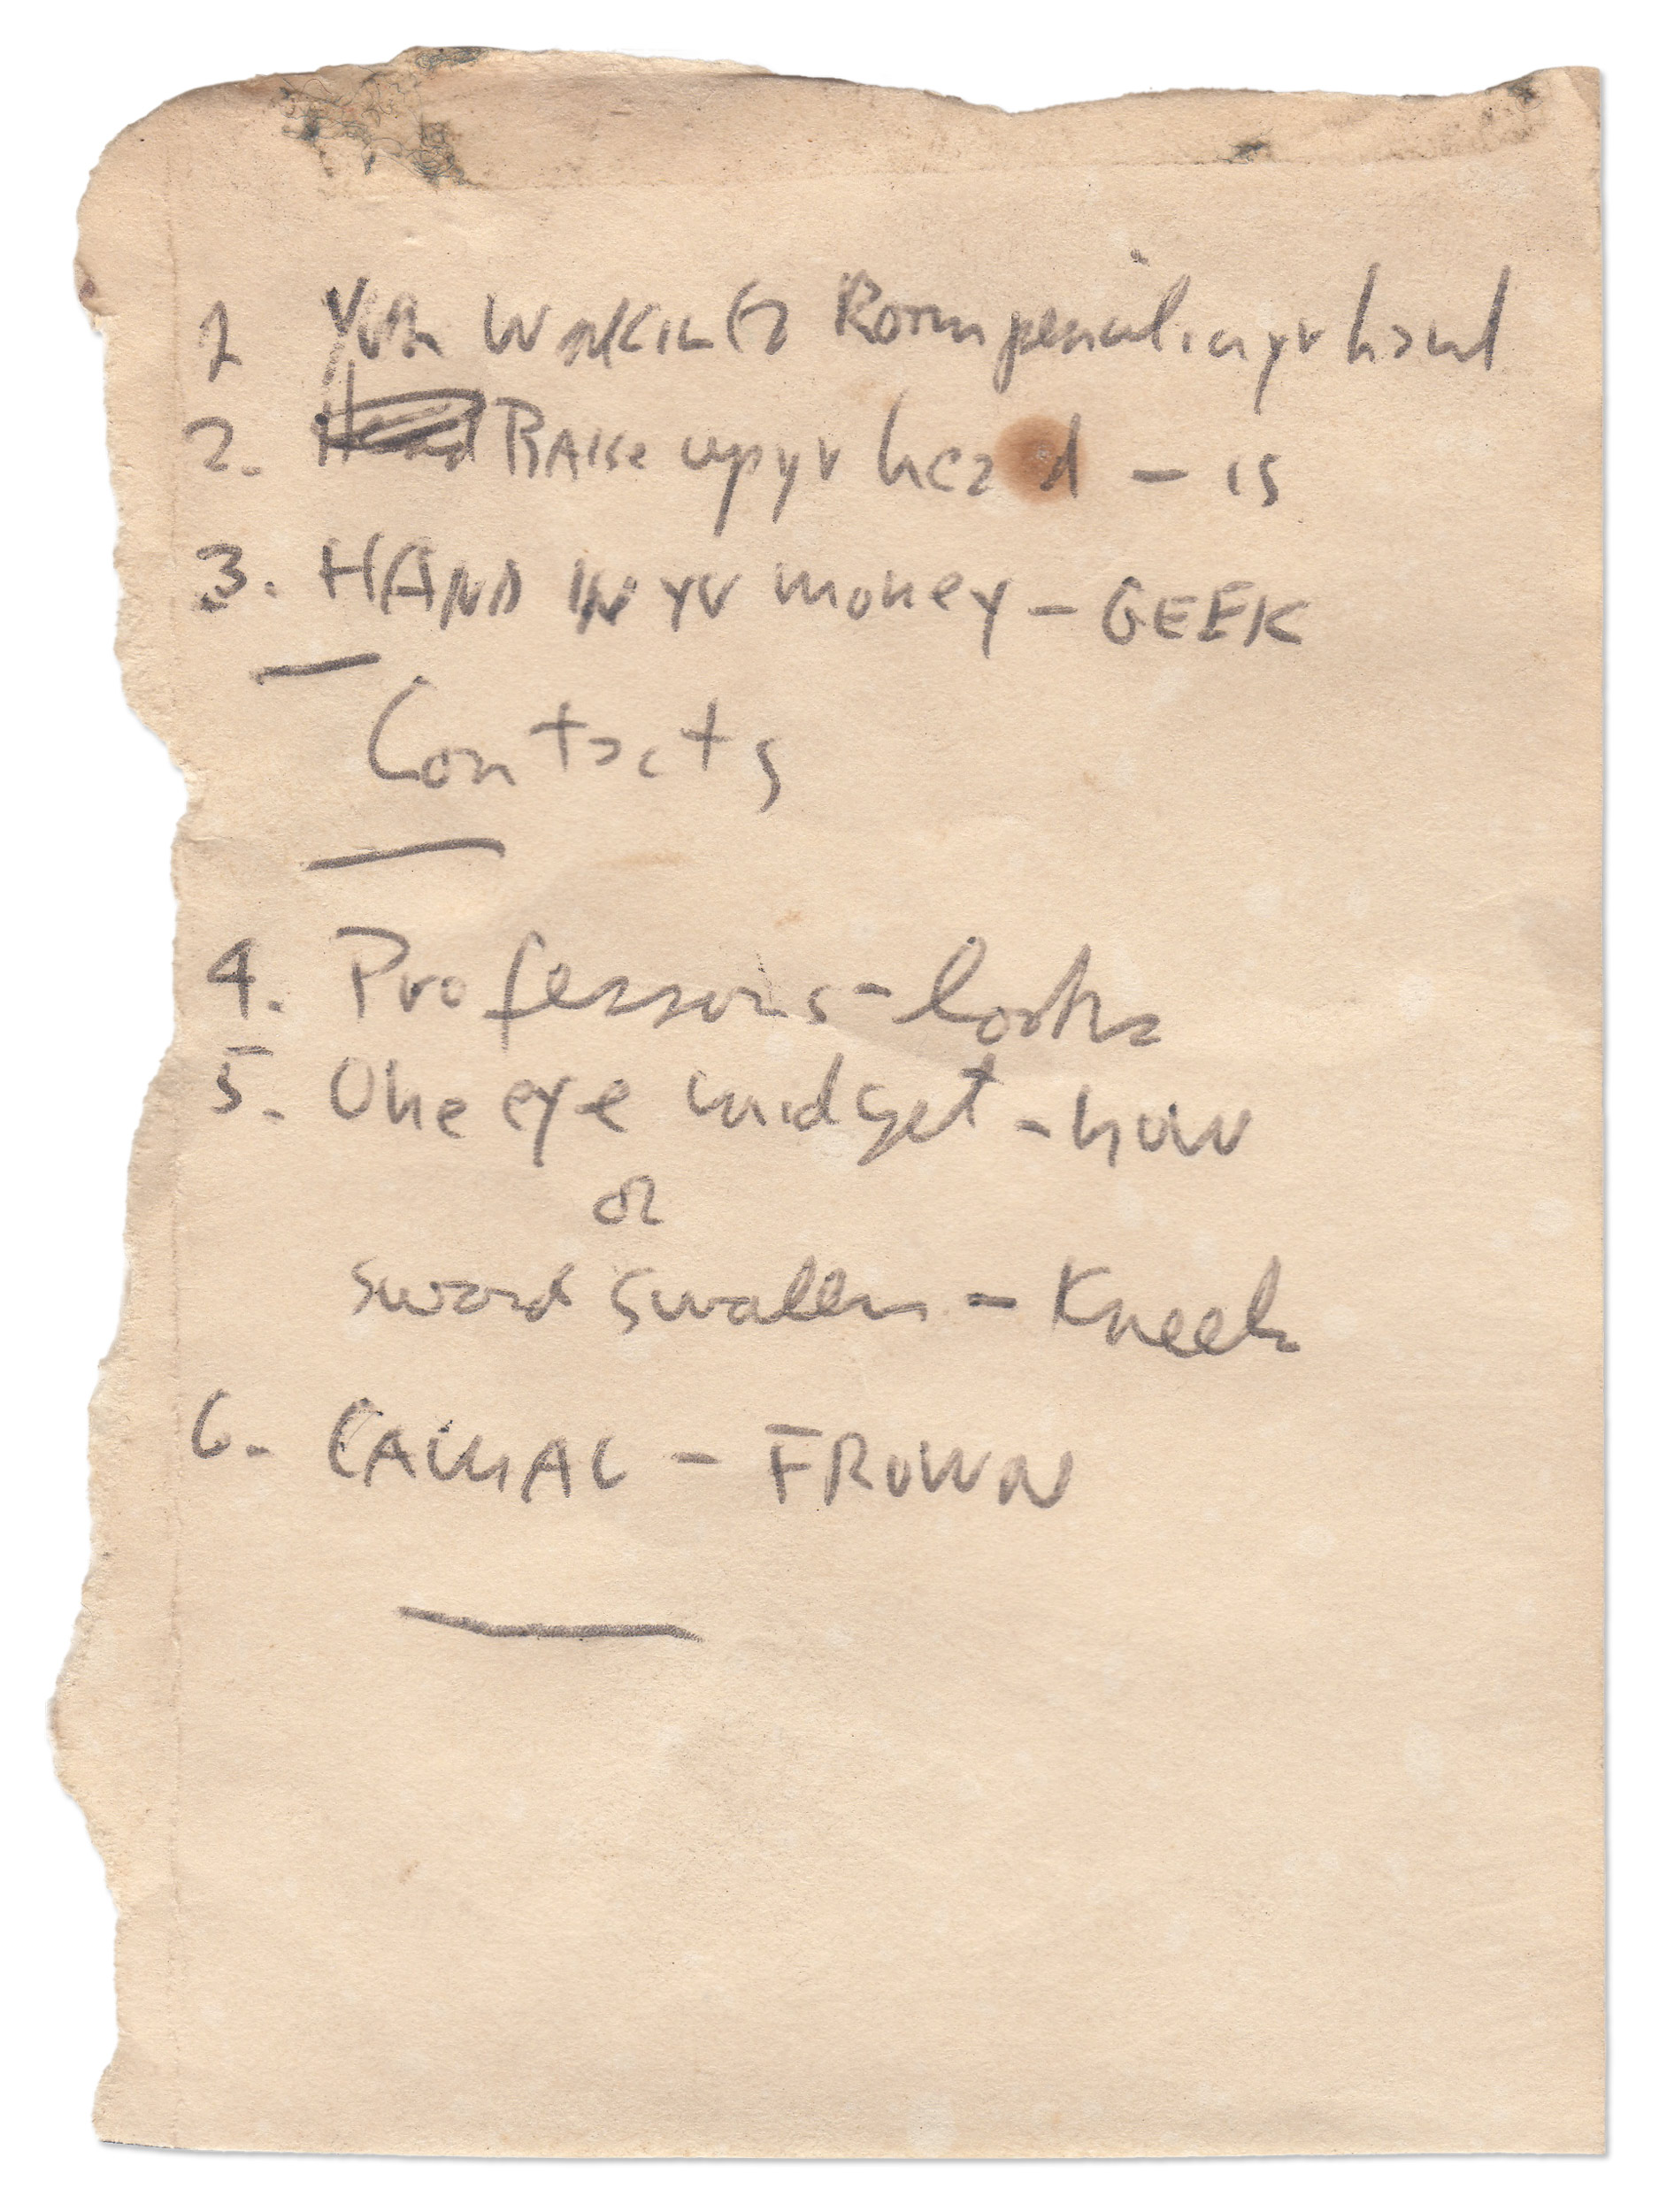 1 You Walk into Room pencil in yr hand
2. Raise up yr head – is
3. HAND IN yr money – GEEK
Contacts
4. Professors – looks
5. One eye midget – how
or
sword swaller – Kneels
6. CAMAL – FROWN